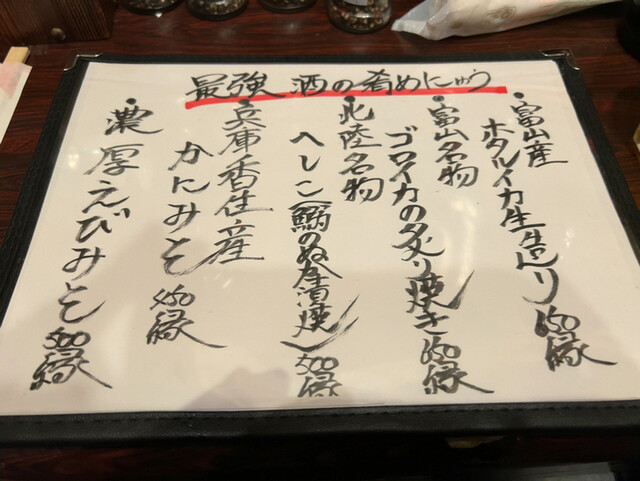 最強酒の肴めにゅう
・富山産
ホタルイカ生造り 650縁
・富山名物
ゴロイカの炙り焼き 650縁
・北陸名物
へしこ(鯖のぬか漬焼) 500縁
・兵庫香住産
かにみそ 450縁
・濃厚えびみそ 500縁